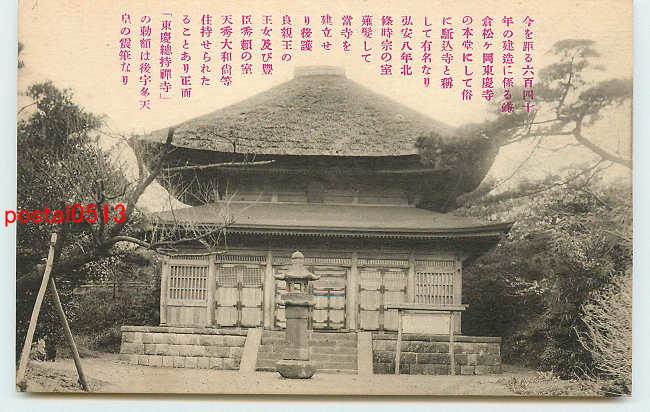 今を距る六百四十
年の建造に係る鎌
倉松ヶ岡東慶寺
の本堂にして俗
に駈込寺と稱
して有名なり
弘安八年北
條時宗の室
薙髮して
當寺を
建立せ
り後護
良親王の
王女及び豊
臣秀頼の室
天秀大和尙等
住持せられた
ることあり正面
「東慶總持禪寺」
の勅額は後宇多天
皇の震筆なり
postal0513